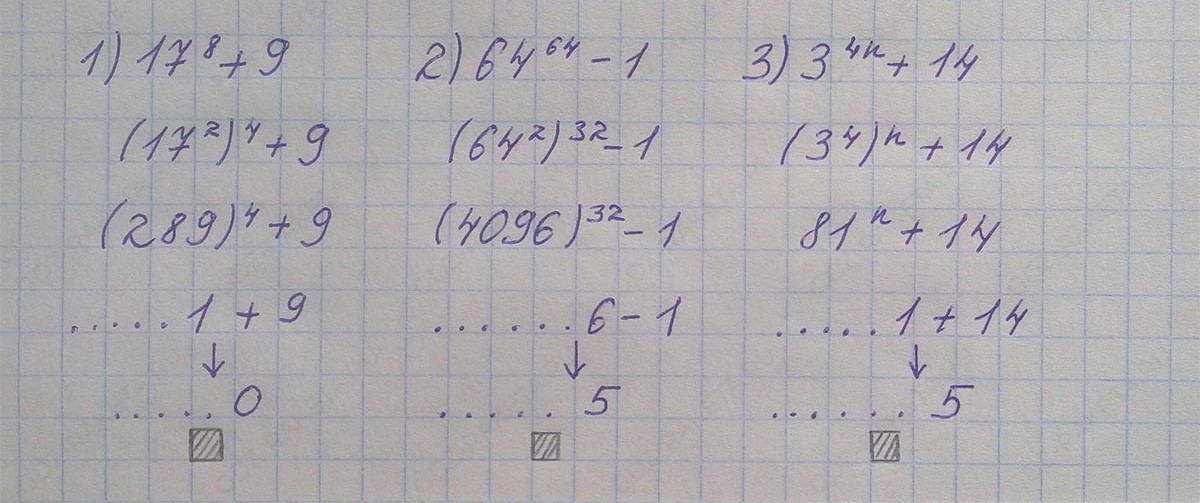 1) 17⁸ + 9
(17²)⁴ + 9
(289)⁴ + 9
.....1 + 9
↓
.....0
2) 64⁶⁴ - 1
(64²)³² - 1
(4096)³² - 1
......6 - 1
↓
......5
3) 3⁴ⁿ + 14
(3⁴)ⁿ + 14
81ⁿ + 14
.....1 + 14
↓
......5